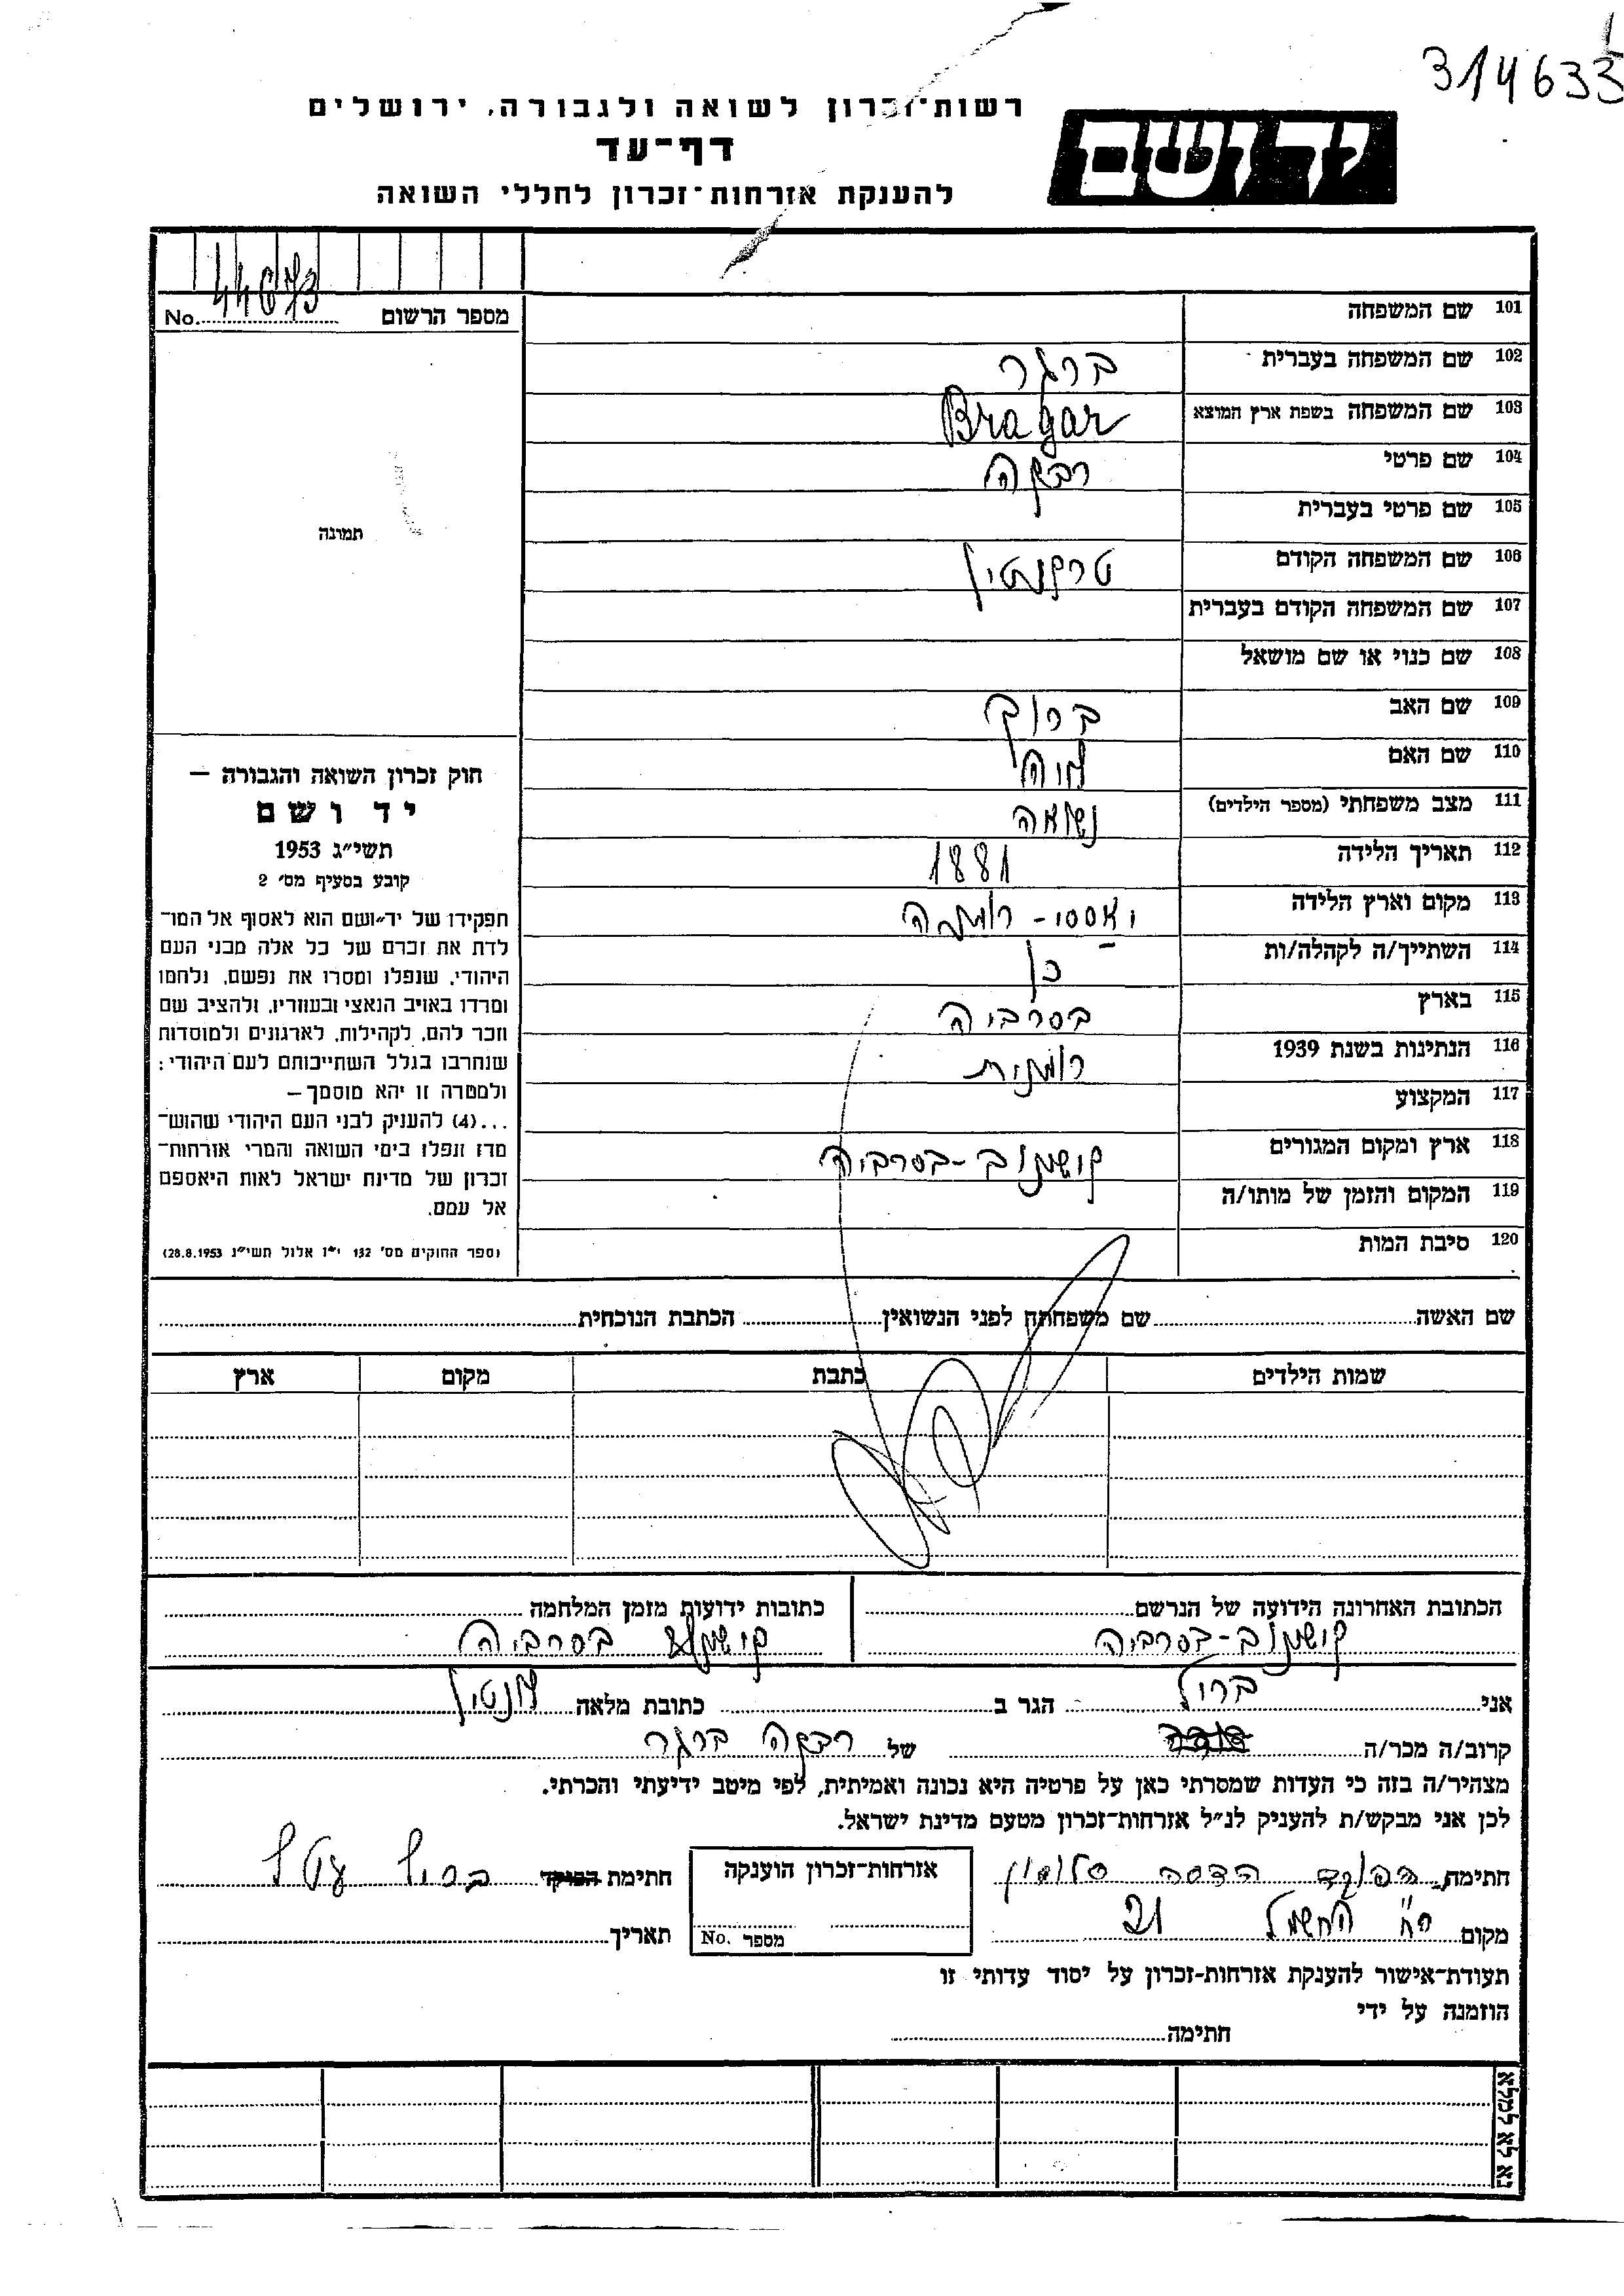 314633
רשות-זכרון לשואה ולגבורה, ירושלים
דף-עד
להענקת אזרחות-זכרון לחללי השואה
יד ושם
מספר הרשום No. 44673
101 שם המשפחה
102 שם המשפחה בעברית ברגר
103 שם המשפחה בשפת ארץ המוצא Bragar
104 שם פרטי רבקה
105 שם פרטי בעברית
106 שם המשפחה הקודם
107 שם המשפחה הקודם בעברית
108 שם כנוי או שם מושאל
109 שם האב ברוך
110 שם האם חיה
111 מצב משפחתי (מספר הילדים) נשואה
112 תאריך הלידה 1881
113 מקום וארץ הלידה יאסי - רומניה
114 השתייך/ה לקהלה/ות כן
115 בארץ בסרביה
116 הנתינות בשנת 1939 רומנית
117 המקצוע
118 ארץ ומקום המגורים קושינוב - בסרביה
119 המקום והזמן של מותו/ה
120 סיבת המות
תמונה
חוק זכרון השואה והגבורה –
יד ושם
תשי״ג 1953
קובע בסעיף מס׳ 2
תפקידו של יד-ושם הוא לאסוף אל המו-
לדת את זכרם של כל אלה מבני העם
היהודי, שנפלו ומסרו את נפשם, נלחמו
ומרדו באויב הנאצי ובעוזריו, ולהציב שם
וזכר להם, לקהילות, לארגונים ולמוסדות
שנחרבו בגלל השתייכותם לעם היהודי;
ולמטרה זו יהא מוסמך –
...(4) להעניק לבני העם היהודי שהוש-
מדו ונפלו בימי השואה והמרי אזרחות-
זכרון של מדינת ישראל לאות היאספם
אל עמם.
(ספר החוקים מס׳ 132 י״ז אלול תשי״ג 28.8.1953)
שם האשה שם משפחתה לפני הנשואין הכתבת הנוכחית
שמות הילדים כתבת מקום ארץ
הכתובת האחרונה הידועה של הנרשם כתובות ידועות מזמן המלחמה
קושינוב - בסרביה בסרביה
אני הגר ב כתובת מלאה
קרוב/ה מכר/ה של רבקה ברגר
מצהיר/ה בזה כי העדות שמסרתי כאן על פרטיה היא נכונה ואמיתית, לפי מיטב ידיעתי והכרתי.
לכן אני מבקש/ת להעניק לנ״ל אזרחות-זכרון מטעם מדינת ישראל.
חתימת הפוקד הדסה סלומון אזרחות-זכרון הוענקה חתימת הפוקד
מקום רח׳ החשמל 21 מספר No. תאריך
תעודת-אישור להענקת אזרחות-זכרון על יסוד עדותי זו
הוזמנה על ידי
חתימה
נא לא למלא